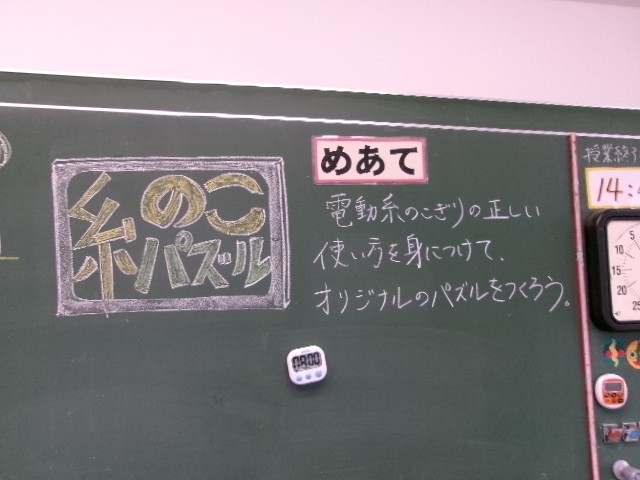 糸のこ
パズル
めあて
電動糸のこぎりの正しい
使い方を身につけて、
オリジナルのパズルをつくろう。
授業終了
14:
08:00
5
10
15
20
25